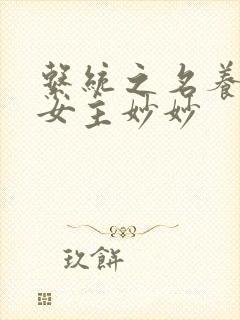 繫統之名養
女主妙妙
玖餅